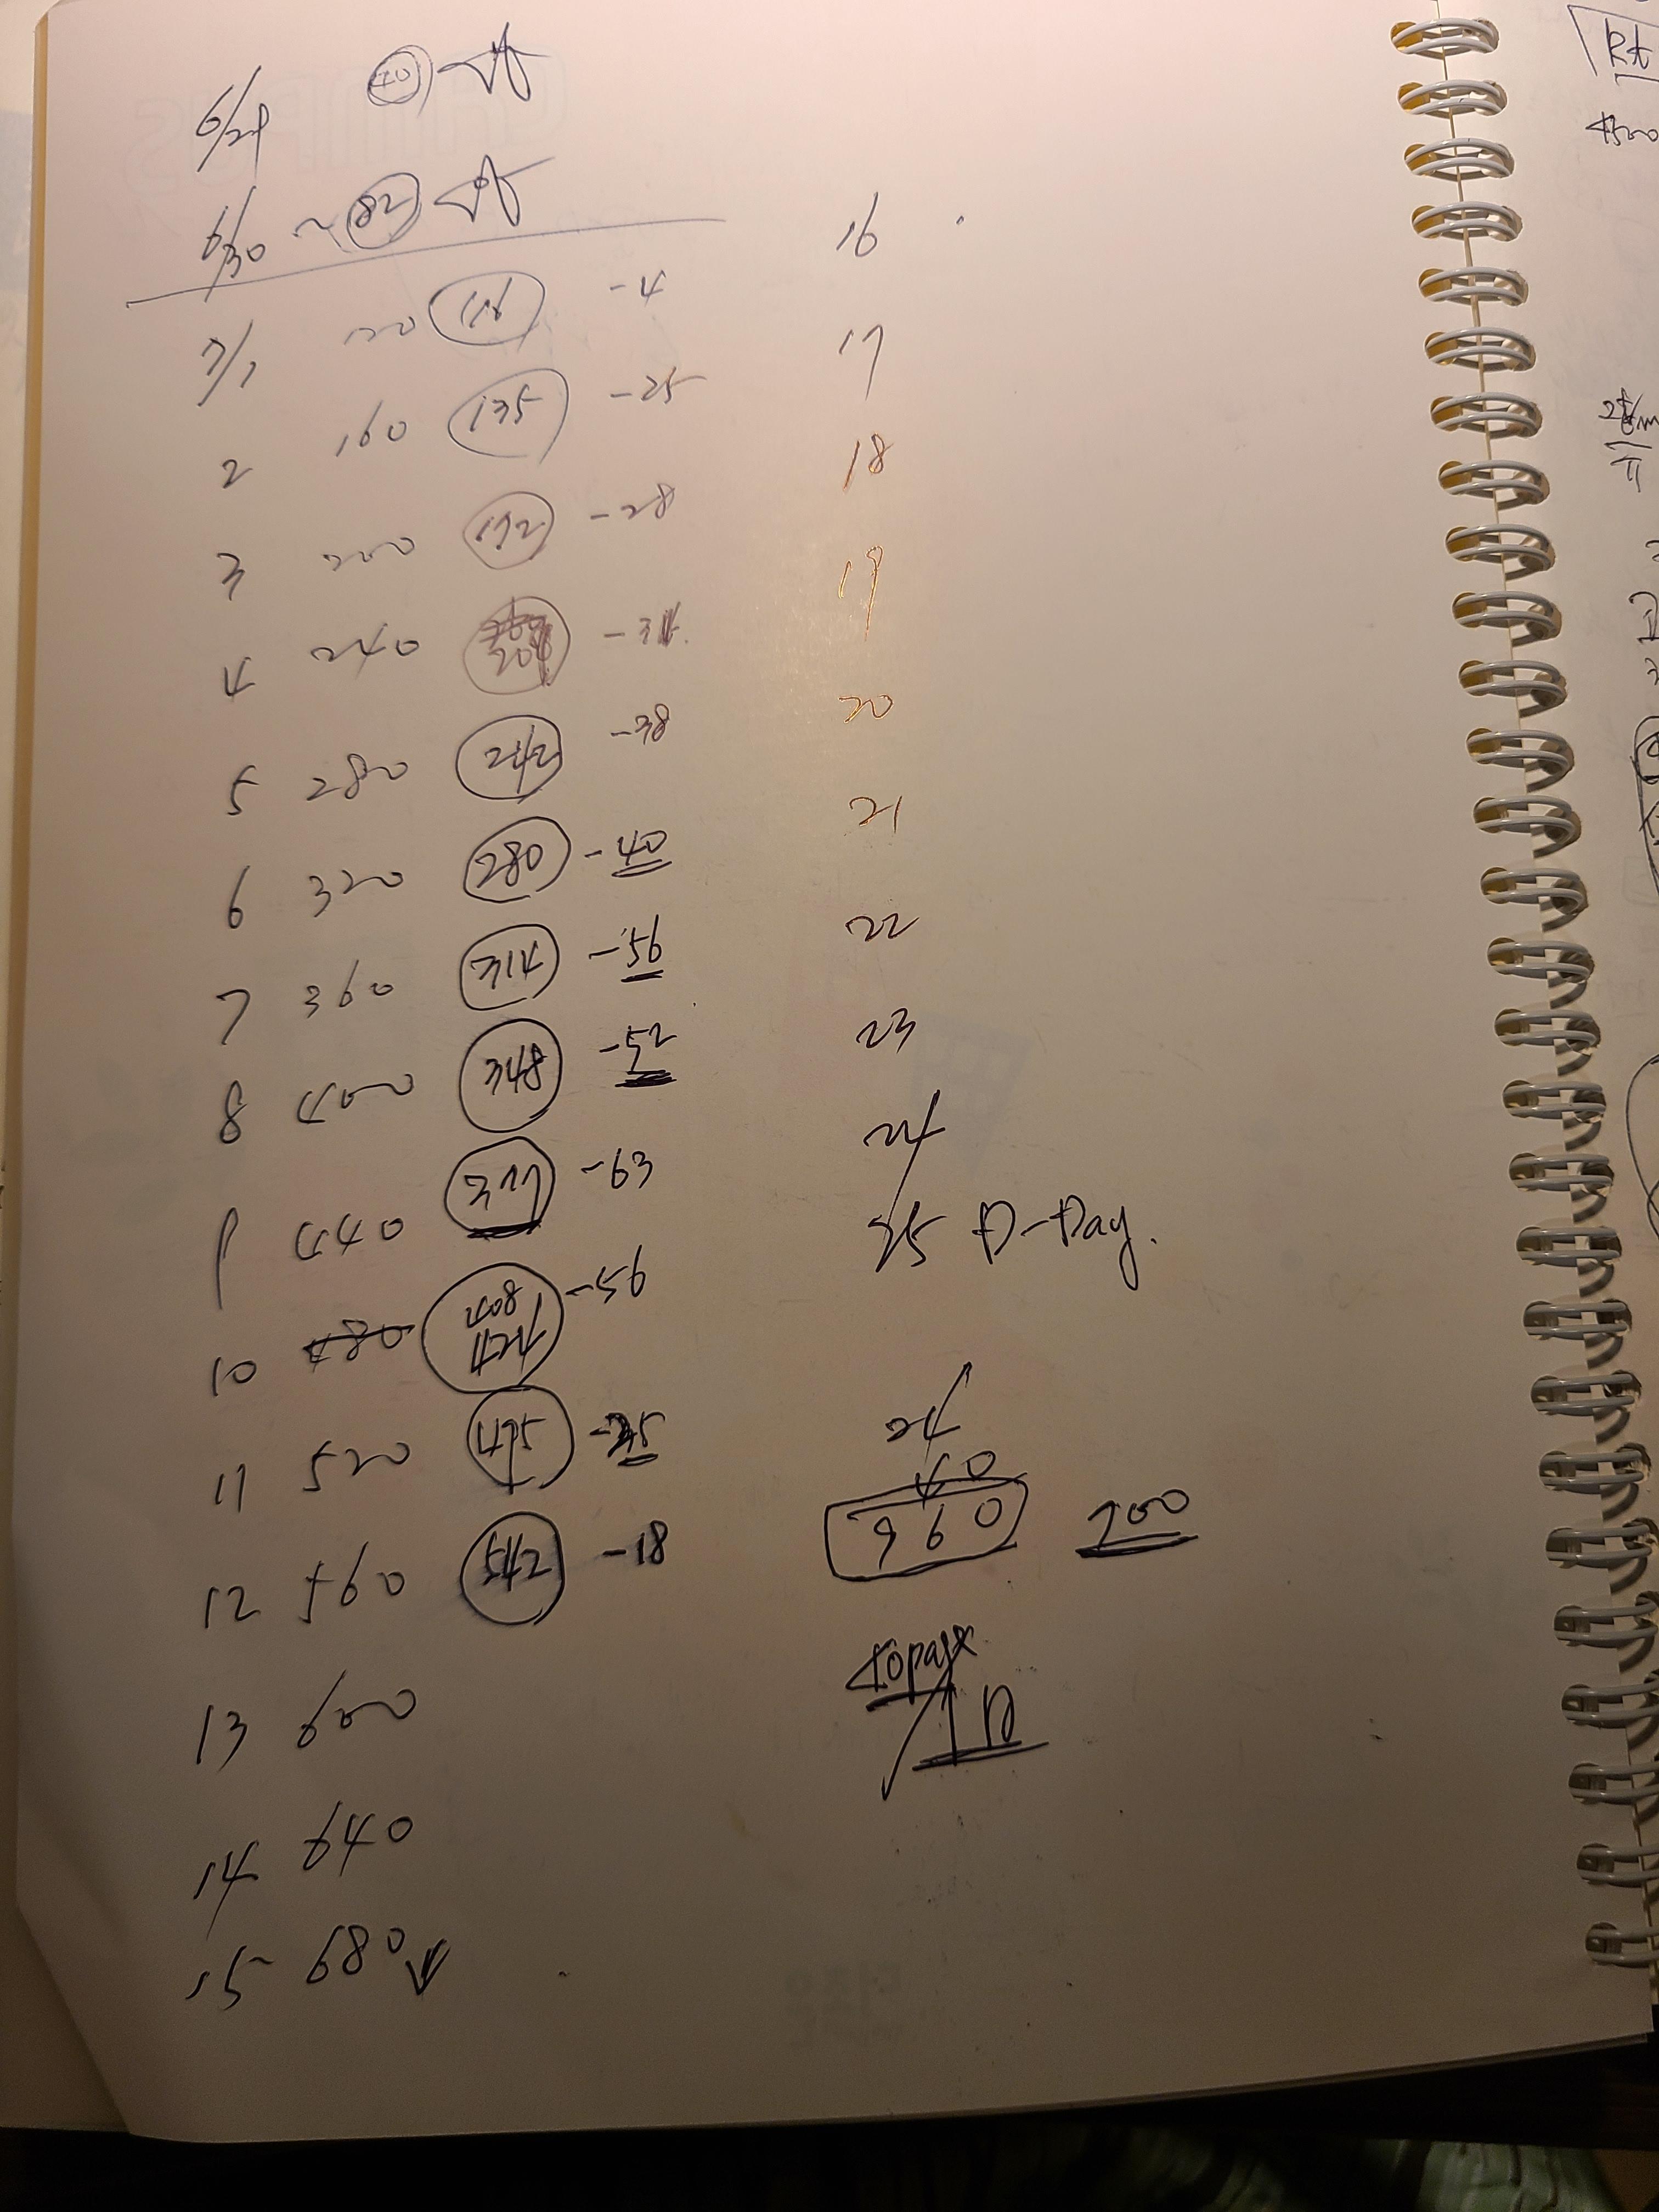 6/29 40
6/30 ~ 82
7/1 120 116 -4
2 160 135 -25
3 200 172 -28
4 240
5 280 242 -38
6 320 280 -40
7 360 314 -56
8 400 348 -52
9 440 377 -63
10 480 408 424 -56
11 520 495 -25
12 560 542 -18
13 600
14 640
15 680
16
17
18
19
20
21
22
23
24
25 D-Day.
24
40
960 700
40page
1D